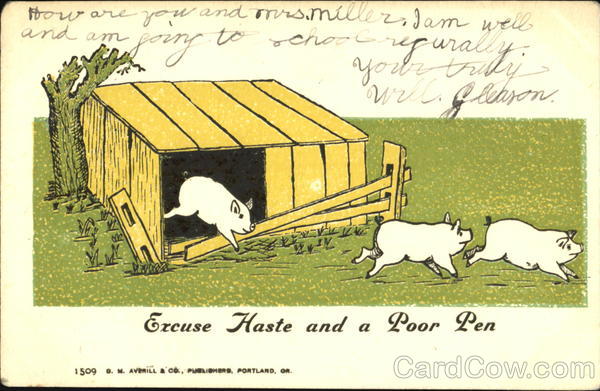 How are you and Mrs. Miller. I am well
and am going to school regurally.
Yours truly
Will. Gleason.
Excuse Haste and a Poor Pen
1509 B. M. AVERILL & CO., PUBLISHERS, PORTLAND, OR.
CardCow.com